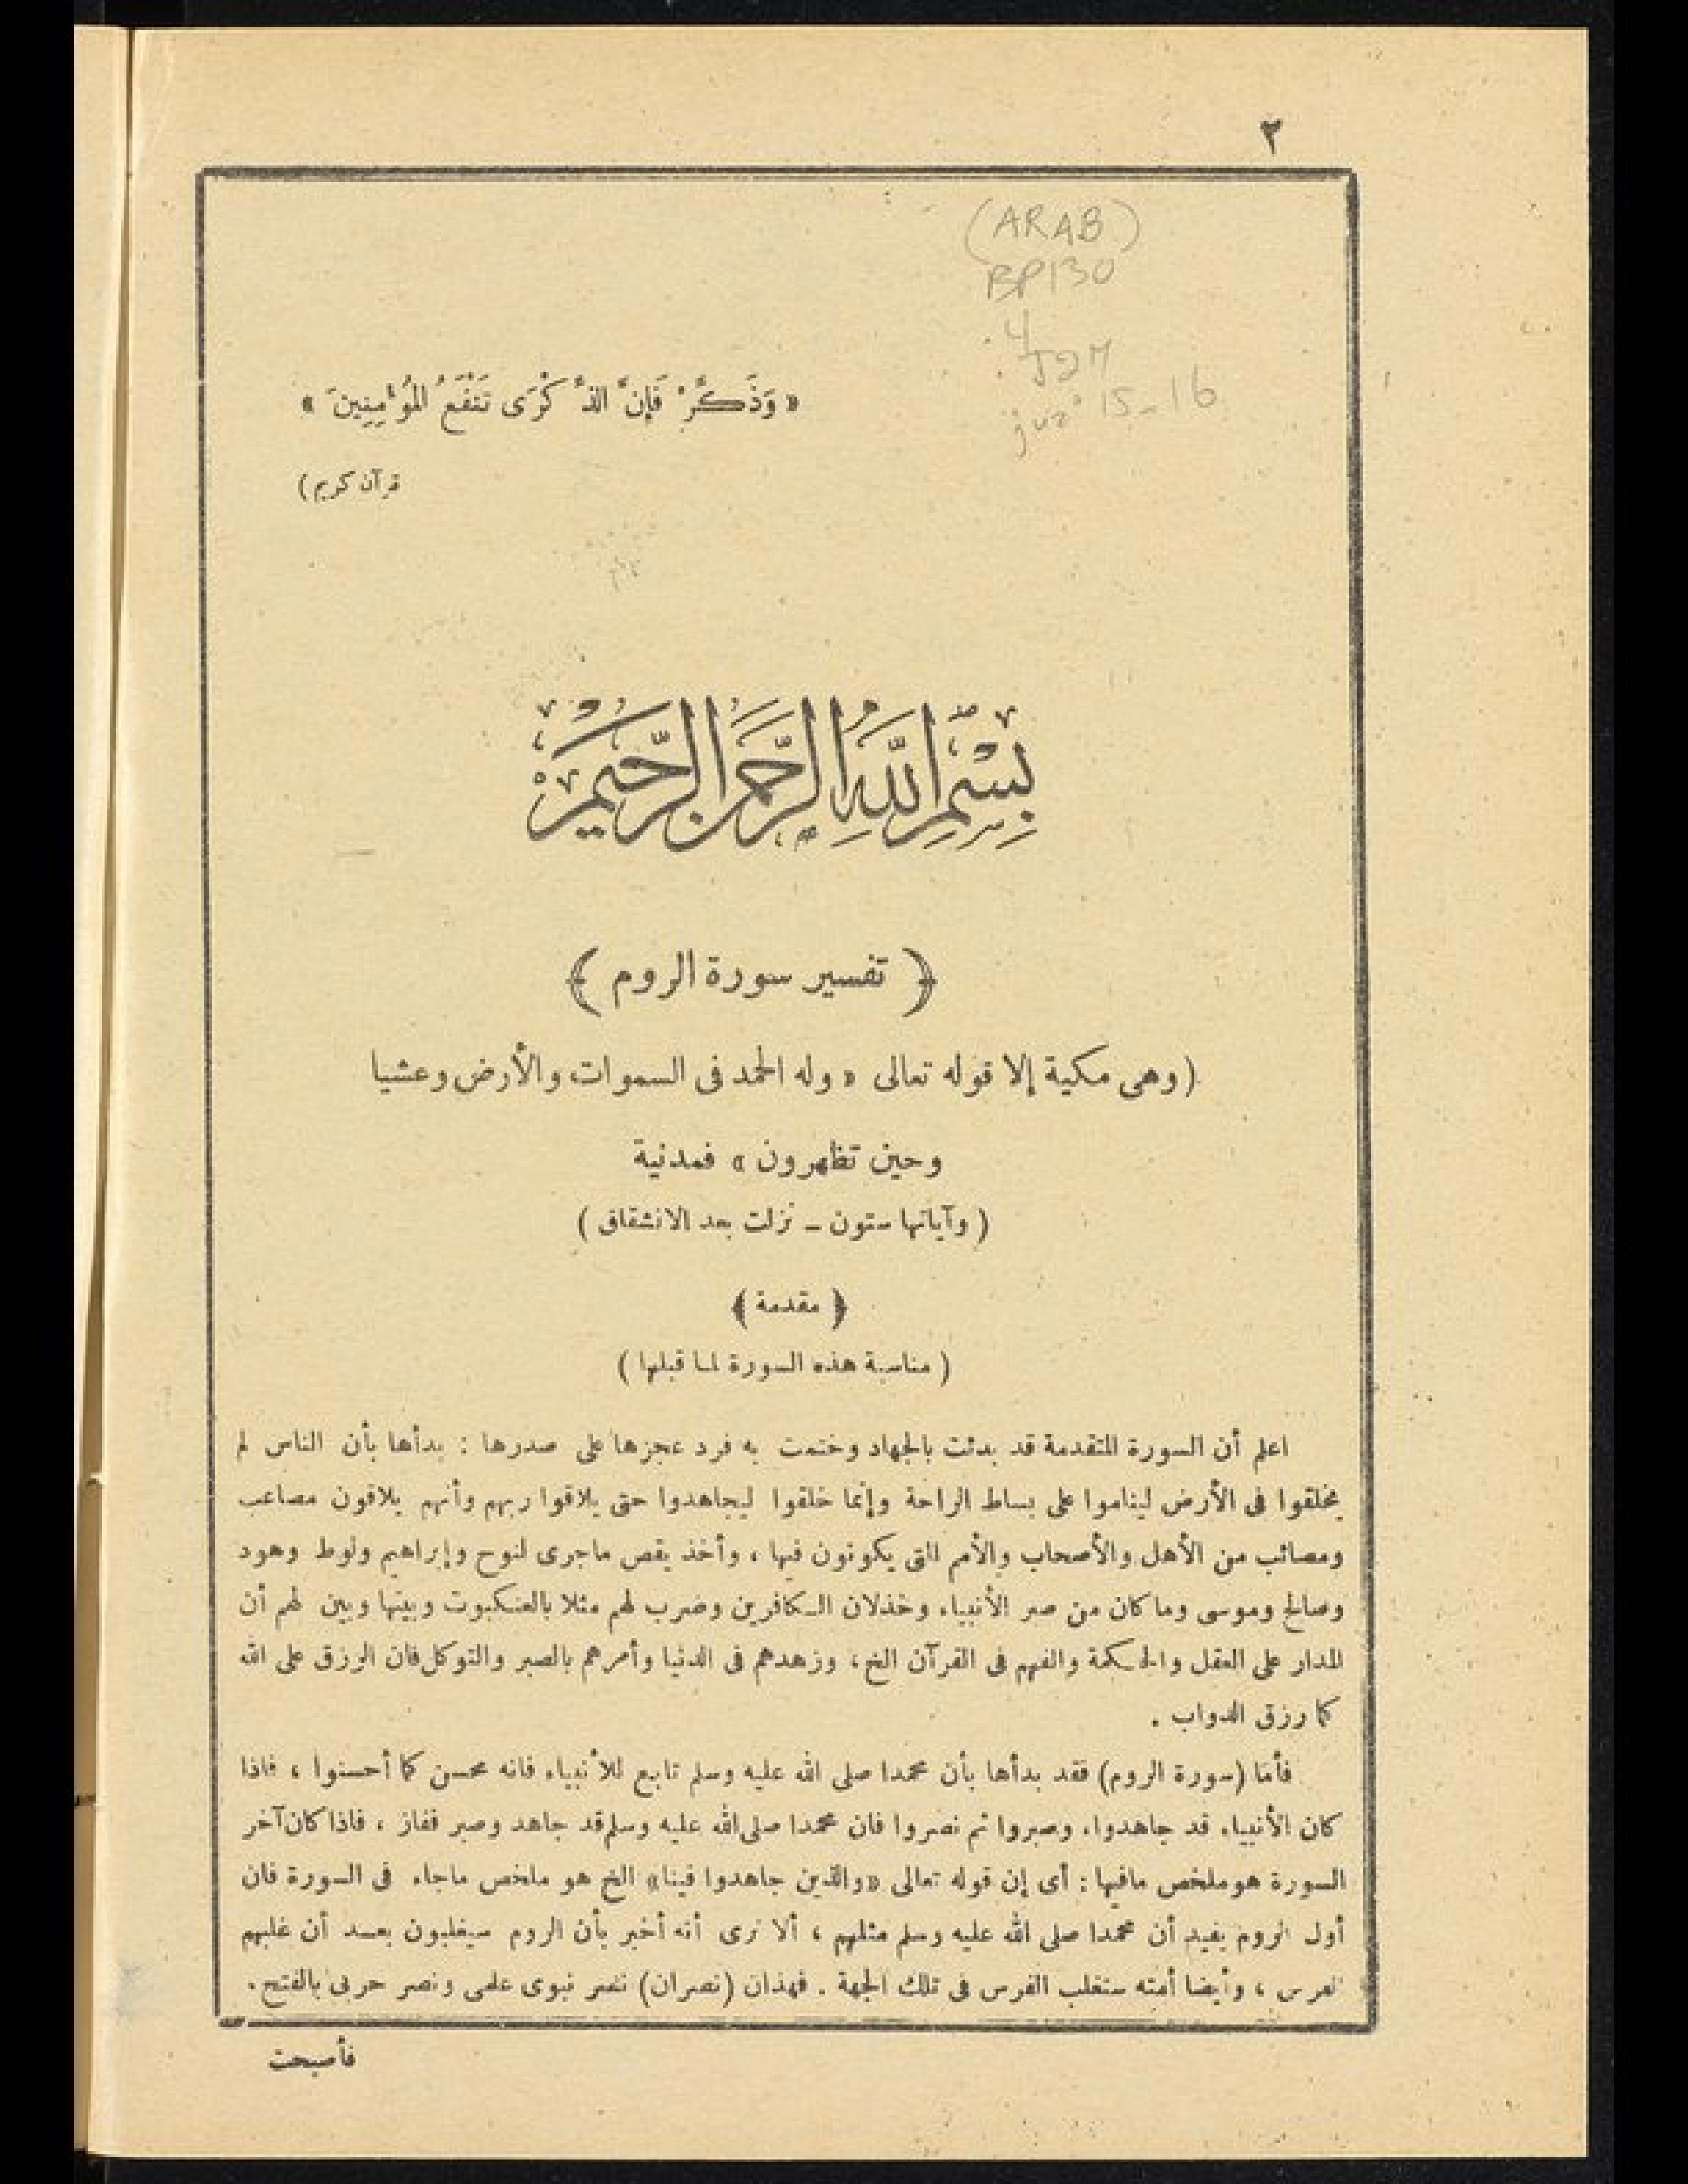 ٢
(ARAB)
BP130
.4
.J27
juz' 15-16
« وَذَكِّرْ فَإِنَّ الذِّكْرَى تَنْفَعُ المُؤْمِنِينَ »
قرآن كريم)
بِسْمِ اللَّهِ الرَّحْمَنِ الرَّحِيمِ
﴿ تفسير سورة الروم ﴾
(وهى مكية إلا قوله تعالى « وله الحمد فى السموات والأرض وعشيا
وحين تظهرون » فمدنية
( وآياتها ستون – نزلت بعد الانشقاق )
﴿ مقدمة ﴾
( مناسبة هذه السورة لما قبلها )
اعلم أن السورة المتقدمة قد بدئت بالجهاد وختمت به فرد عجزها على صدرها : بدأها بأن الناس لم
يخلقوا فى الأرض ليناموا على بساط الراحة وإنما خلقوا ليجاهدوا حتى يلاقوا ربهم وأنهم يلاقون مصاعب
ومصائب من الأهل والأصحاب والأمم التى يكونون فيها ، وأخذ يقص ماجرى لنوح وإبراهيم ولوط وهود
وصالح وموسى وما كان من صبر الأنبياء وخذلان الكافرين وضرب لهم مثلا بالعنكبوت وبيتها وبين لهم أن
المدار على العقل والحكمة والفهم فى القرآن الخ ، وزهدهم فى الدنيا وأمرهم بالصبر والتوكل فان الرزق على الله
كما رزق الدواب .
فأما (سورة الروم) فقد بدأها بأن محمدا صلى الله عليه وسلم تابع للأنبياء فانه محسن كما أحسنوا ، فاذا
كان الأنبياء قد جاهدوا وصبروا ثم نصروا فان محمدا صلى الله عليه وسلم قد جاهد وصبر ففاز ، فاذا كان آخر
السورة هو ملخص مافيها : أى إن قوله تعالى «والذين جاهدوا فينا» الخ هو ملخص ماجاء فى السورة فان
أول الروم يفيد أن محمدا صلى الله عليه وسلم مثلهم ، ألا ترى أنه أخبر بأن الروم سيغلبون بعد أن غلبهم
الفرس ، وأيضا أمته ستغلب الفرس فى تلك الجهة . فهذان (نصران) نصر نبوى علمى ونصر حربى بالفتح .
فأصبحت